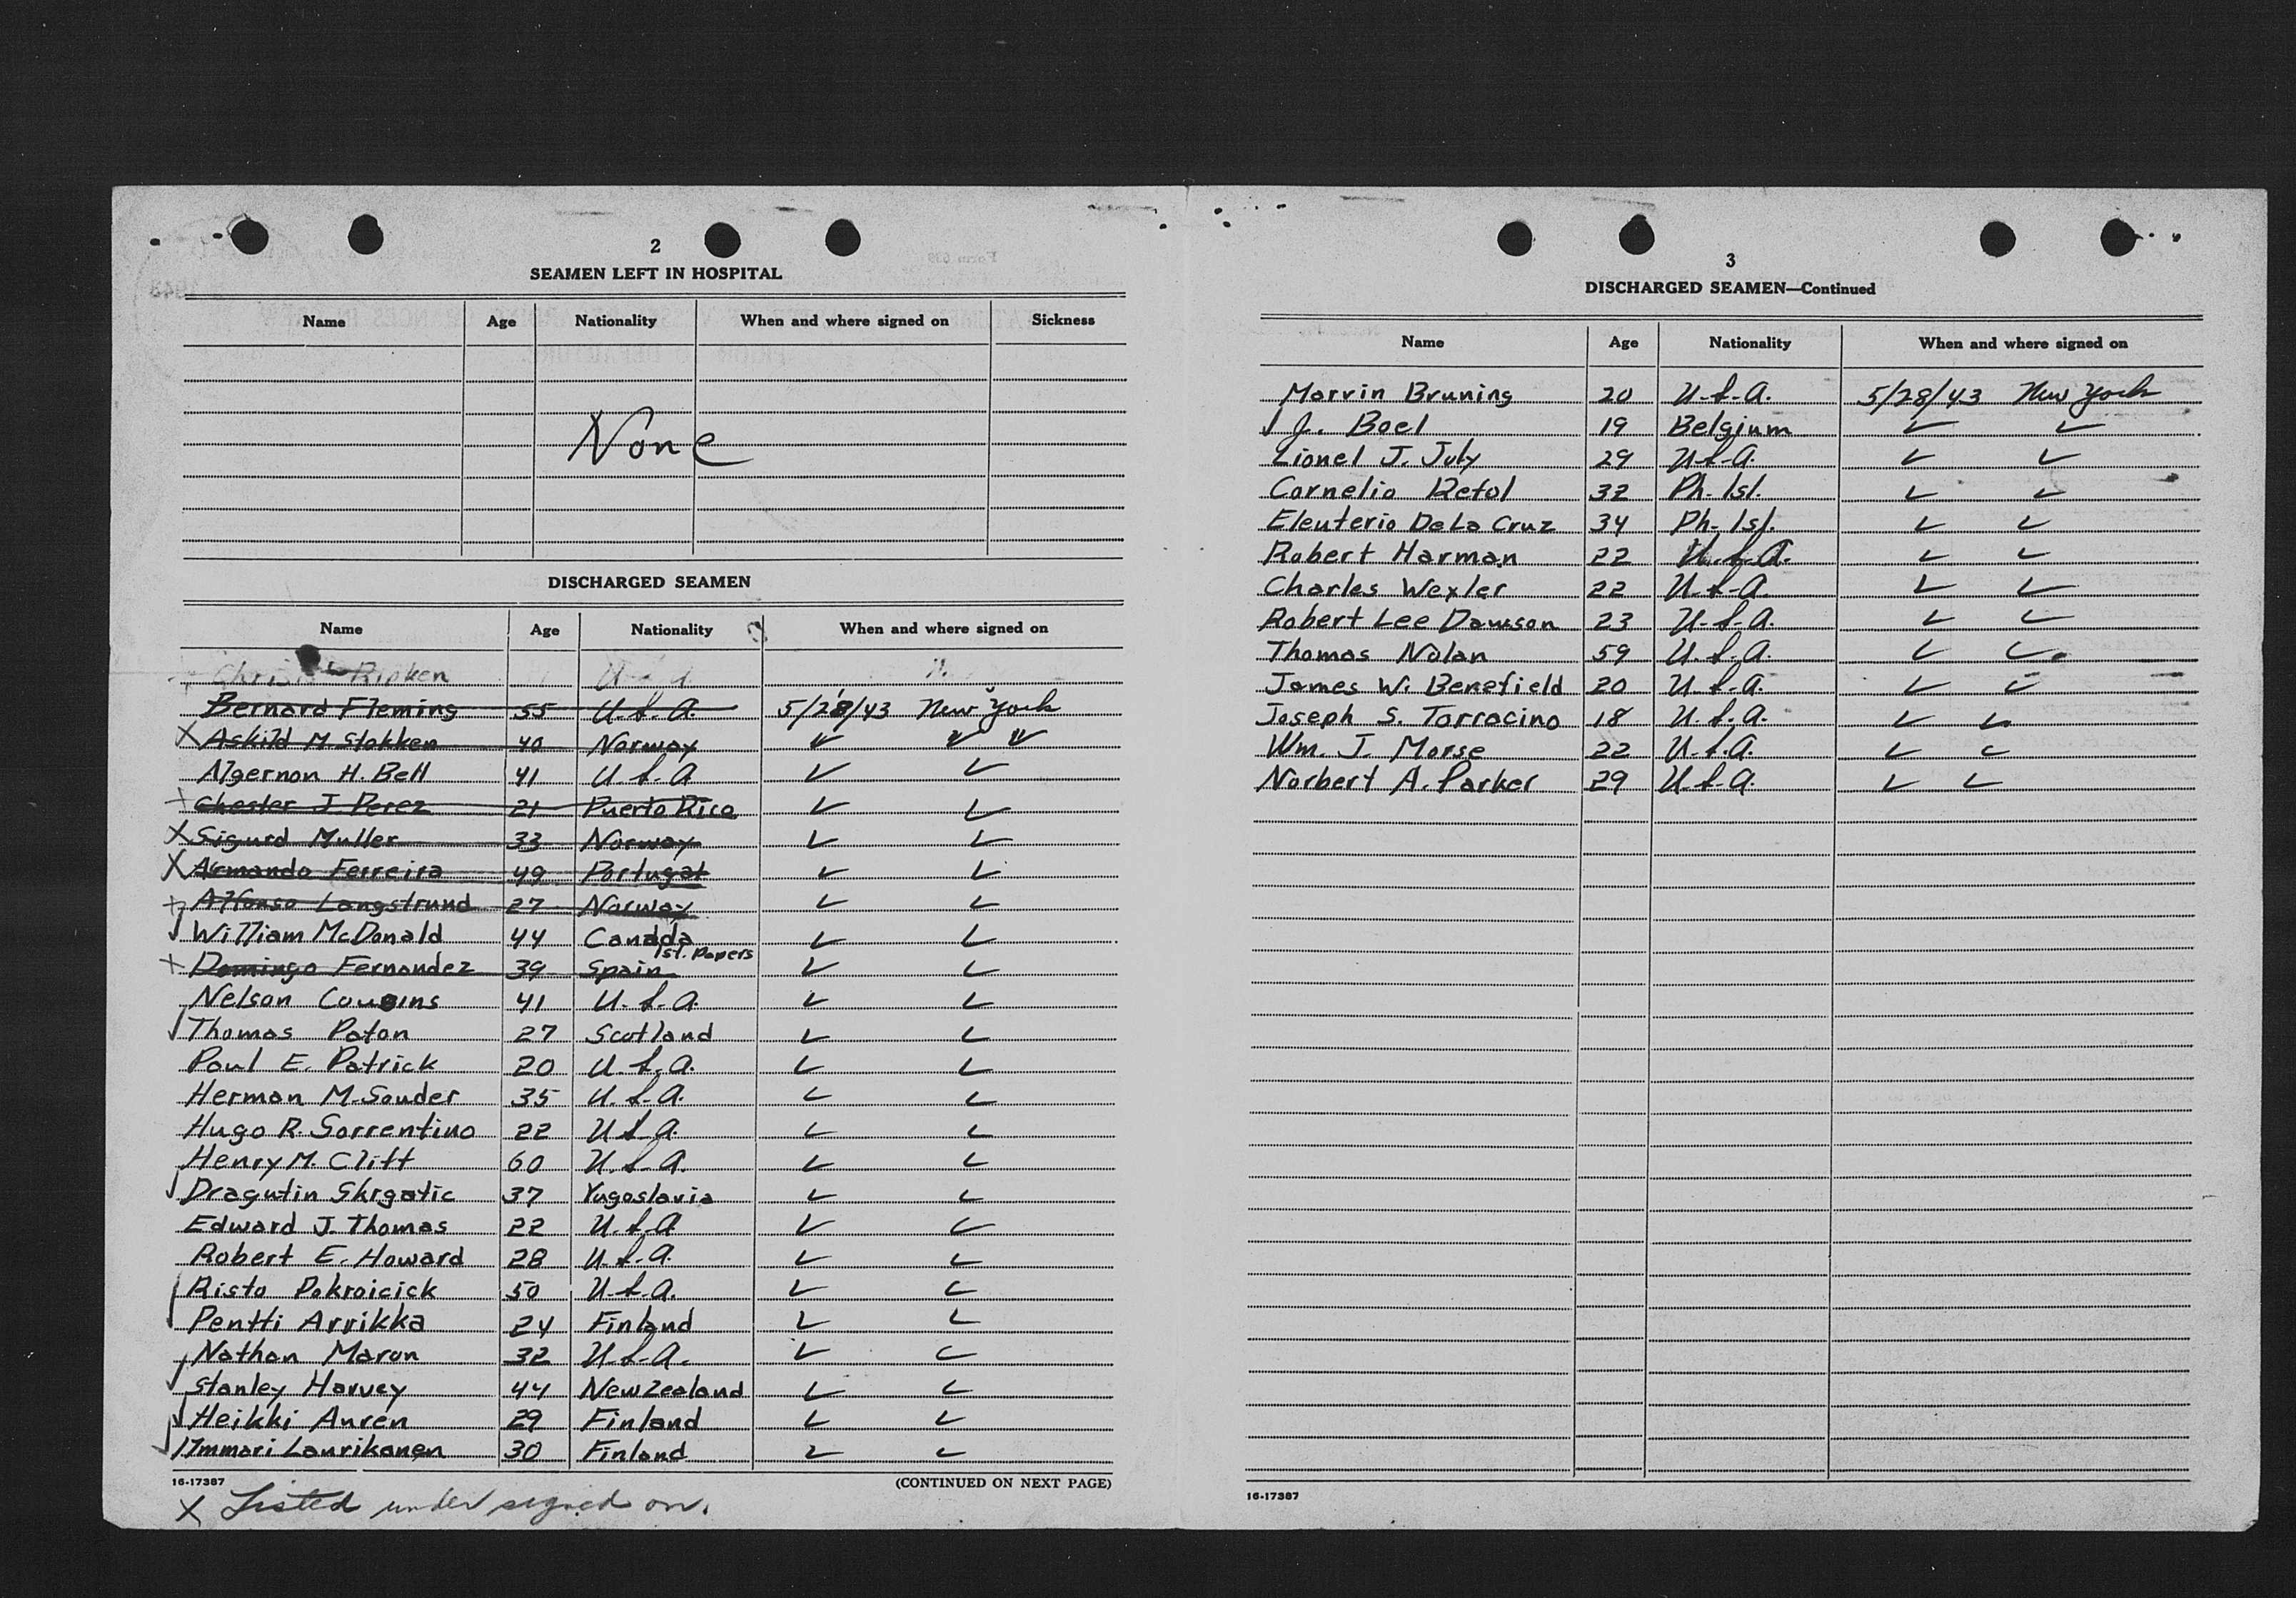 2
SEAMEN LEFT IN HOSPITAL
Name Age Nationality When and where signed on Sickness
None
DISCHARGED SEAMEN
Name Age Nationality When and where signed on
Ripken
Bernard Fleming 55 U.S.A. 5/28/43 New York
X Askild M. Stokken 40 Norway ✓ ✓ ✓
Algernon H. Bell 41 U.S.A ✓ ✓
X Chester J. Perez 21 Puerto Rico ✓ ✓
X Sigurd Muller 33 Norway ✓ ✓
X Armando Ferreira 49 Portugal ✓ ✓
Alfonso Langstrund 27 Norway ✓ ✓
✓ William McDonald 44 Canada ✓ ✓
1st. Papers
X Domingo Fernandez 39 Spain ✓ ✓
Nelson Cousins 41 U.S.A. ✓ ✓
✓ Thomas Paton 27 Scotland ✓ ✓
Paul E. Patrick 20 U.S.A. ✓ ✓
Herman M. Souder 35 U.S.A. ✓ ✓
Hugo R. Sorrentino 22 U.S.A. ✓ ✓
Henry M. Clift 60 U.S.A. ✓ ✓
✓ Dragutin Skrgatic 37 Yugoslavia ✓ ✓
Edward J. Thomas 22 U.S.A ✓ ✓
Robert E. Howard 28 U.S.A. ✓ ✓
Risto Pokroicick 50 U.S.A. ✓ ✓
Pentti Arvikka 24 Finland ✓ ✓
Nathan Maron 32 U.S.A. ✓ ✓
✓ Stanley Harvey 44 New Zealand ✓ ✓
✓ Heikki Anren 29 Finland ✓ ✓
✓ Ilmmari Laurikanen 30 Finland ✓ ✓
16-17387 (CONTINUED ON NEXT PAGE)
X Listed under signed on.
3
DISCHARGED SEAMEN—Continued
Name Age Nationality When and where signed on
Marvin Bruning 20 U.S.A. 5/28/43 New York
✓ J. Boel 19 Belgium ✓ ✓
Lionel J. July 29 U.S.A. ✓ ✓
Cornelio Retol 32 Ph. Isl. ✓ ✓
Eleuterio De La Cruz 34 Ph. Isl. ✓ ✓
Robert Harman 22 U.S.A. ✓ ✓
Charles Wexler 22 U.S.A. ✓ ✓
Robert Lee Dawson 23 U.S.A. ✓ ✓
Thomas Nolan 59 U.S.A. ✓ ✓
James W. Benefield 20 U.S.A. ✓ ✓
Joseph S. Tarracino 18 U.S.A. ✓ ✓
Wm. J. Morse 22 U.S.A. ✓ ✓
Norbert A. Parker 29 U.S.A. ✓ ✓
16-17387